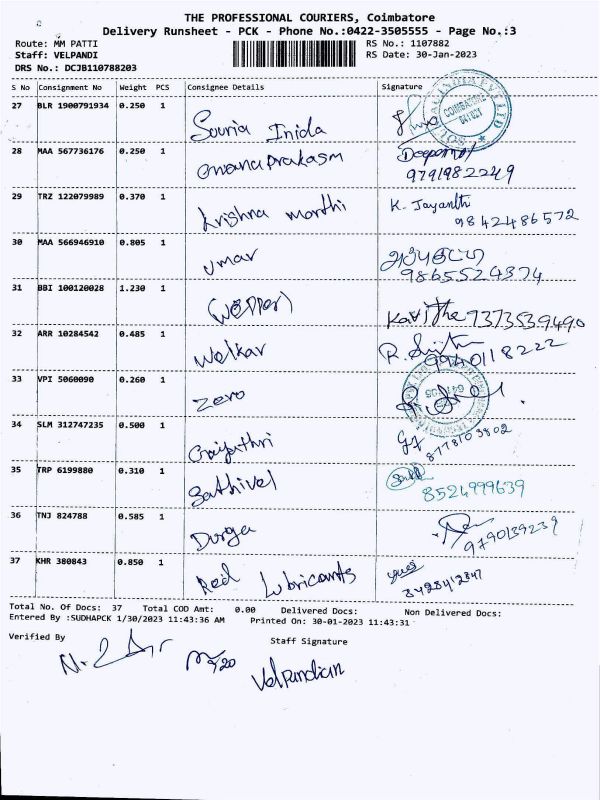 THE PROFESSIONAL COURIERS, Coimbatore
Delivery Runsheet - PCK - Phone No.:0422-3505555 - Page No.:3
Route: MM PATTI
Staff: VELPANDI
DRS No.: DCJB110788203
RS No.: 1107882
RS Date: 30-Jan-2023
S No Consignment No Weight PCS Consignee Details Signature
27 BLR 1900791934 0.250 1 Souria Inida
28 MAA 567736176 0.250 1 Gnanaprakasm
9791982249
29 TRZ 122079989 0.370 1 krishna morthi K. Jayanthi
9842486572
30 MAA 566946910 0.805 1 Umar
9865524374
31 BBI 100120028 1.230 1 Kavitha 7373539490
32 ARR 10284542 0.485 1 Welkar
9940118222
33 VPI 5060090 0.260 1 Zero
34 SLM 312747235 0.500 1 Gaiyathri
8778103802
35 TRP 6199880 0.310 1 Sathivel
8524999639
36 TNJ 824788 0.585 1 Durga
9790139239
37 KHR 380843 0.850 1 Red Lubricants
Total No. Of Docs: 37 Total COD Amt: 0.00 Delivered Docs: Non Delivered Docs:
Entered By :SUDHAPCK 1/30/2023 11:43:36 AM Printed On: 30-01-2023 11:43:31
Verified By Staff Signature
Velpandian